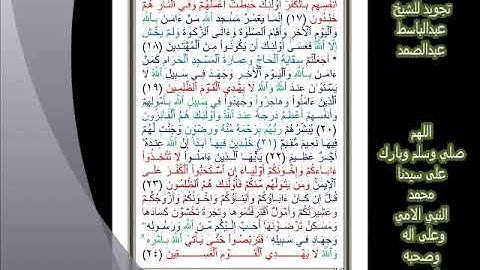 تجويد للشيخ
عبدالباسط
عبدالصمد
أَنفُسِهِم بِالْكُفْرِ أُوْلَٰئِكَ حَبِطَتْ أَعْمَٰلُهُمْ وَفِي النَّارِ هُمْ
خَٰلِدُونَ (١٧) إِنَّمَا يَعْمُرُ مَسَٰجِدَ اللَّهِ مَنْ ءَامَنَ بِاللَّهِ
وَالْيَوْمِ الْآخِرِ وَأَقَامَ الصَّلَوٰةَ وَءَاتَى الزَّكَوٰةَ وَلَمْ يَخْشَ
إِلَّا اللَّهَ فَعَسَىٰ أُوْلَٰئِكَ أَن يَكُونُوا مِنَ الْمُهْتَدِينَ (١٨)
* أَجَعَلْتُمْ سِقَايَةَ الْحَاجِّ وَعِمَارَةَ الْمَسْجِدِ الْحَرَامِ كَمَنْ
ءَامَنَ بِاللَّهِ وَالْيَوْمِ الْآخِرِ وَجَٰهَدَ فِي سَبِيلِ اللَّهِ لَا
يَسْتَوُونَ عِندَ اللَّهِ وَاللَّهُ لَا يَهْدِي الْقَوْمَ الظَّٰلِمِينَ (١٩)
الَّذِينَ ءَامَنُوا وَهَاجَرُوا وَجَٰهَدُوا فِي سَبِيلِ اللَّهِ بِأَمْوَٰلِهِمْ
وَأَنفُسِهِمْ أَعْظَمُ دَرَجَةً عِندَ اللَّهِ وَأُوْلَٰئِكَ هُمُ الْفَائِزُونَ
(٢٠) يُبَشِّرُهُمْ رَبُّهُم بِرَحْمَةٍ مِّنْهُ وَرِضْوَٰنٍ وَجَنَّٰتٍ لَّهُمْ
فِيهَا نَعِيمٌ مُّقِيمٌ (٢١) خَٰلِدِينَ فِيهَا أَبَدًا إِنَّ اللَّهَ عِندَهُ
أَجْرٌ عَظِيمٌ (٢٢) يَٰأَيُّهَا الَّذِينَ ءَامَنُوا لَا تَتَّخِذُوا
ءَابَاءَكُمْ وَإِخْوَٰنَكُمْ أَوْلِيَاءَ إِنِ اسْتَحَبُّوا الْكُفْرَ عَلَى
الْإِيمَٰنِ وَمَن يَتَوَلَّهُم مِّنكُمْ فَأُوْلَٰئِكَ هُمُ الظَّٰلِمُونَ (٢٣)
قُلْ إِن كَانَ ءَابَاؤُكُمْ وَأَبْنَاؤُكُمْ وَإِخْوَٰنُكُمْ وَأَزْوَٰجُكُمْ
وَعَشِيرَتُكُمْ وَأَمْوَٰلٌ اقْتَرَفْتُمُوهَا وَتِجَٰرَةٌ تَخْشَوْنَ كَسَادَهَا
وَمَسَٰكِنُ تَرْضَوْنَهَا أَحَبَّ إِلَيْكُم مِّنَ اللَّهِ وَرَسُولِهِ
وَجِهَادٍ فِي سَبِيلِهِ فَتَرَبَّصُوا حَتَّىٰ يَأْتِيَ اللَّهُ بِأَمْرِهِ
وَاللَّهُ لَا يَهْدِي الْقَوْمَ الْفَٰسِقِينَ (٢٤)
اللهم
صلي وسلم وبارك
على سيدنا
محمد
النبي الامي
وعلى اله
وصحبه